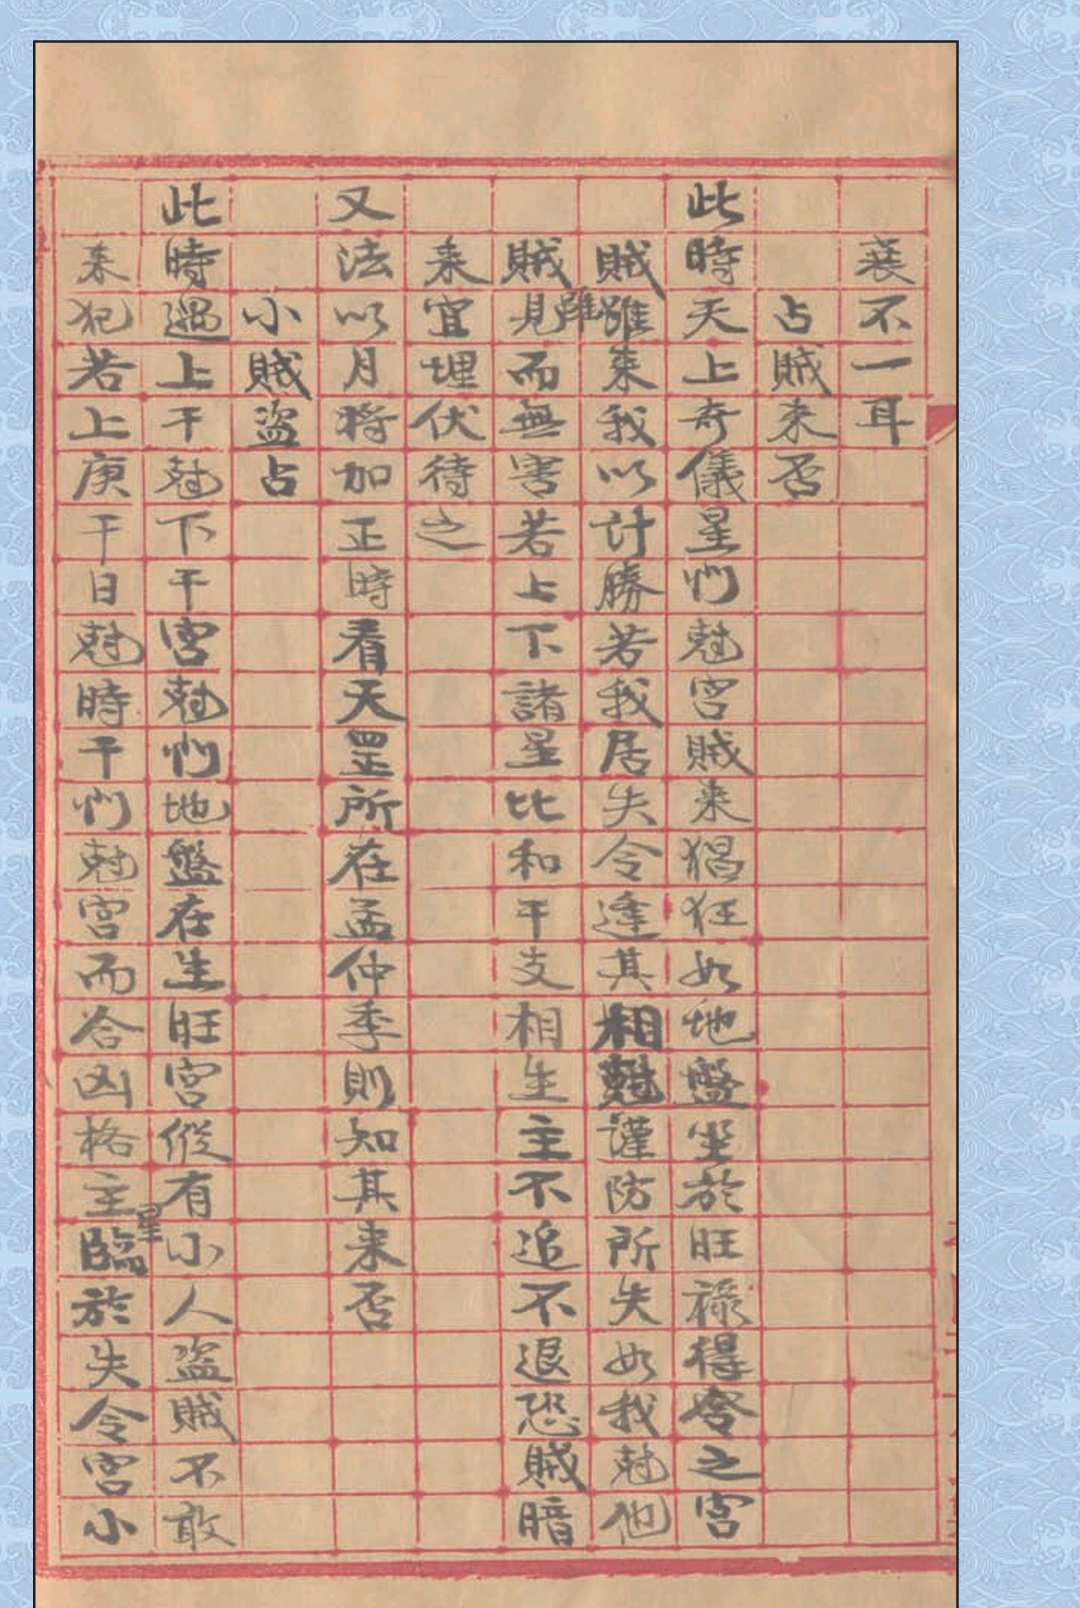 衰不一耳
占賊来否
此時天上奇儀星门尅宮賊来猖狂如地盤坐於旺祿得令之宮
賊雖来我以計勝若我居失令逢其相尅謹防所失如我尅他
賊雖見而無害若上下諸星比和干支相生主不追不退恐賊暗
来宜埋伏待之
又法以月将加正時看天罡所在孟仲季則知其来否
小賊盜占
此時遇上干尅下干宮尅门地盤在生旺宮縱有小人盜賊不敢
来犯若上庚干日尅時干门尅宮而合凶格主星臨於失令宮小